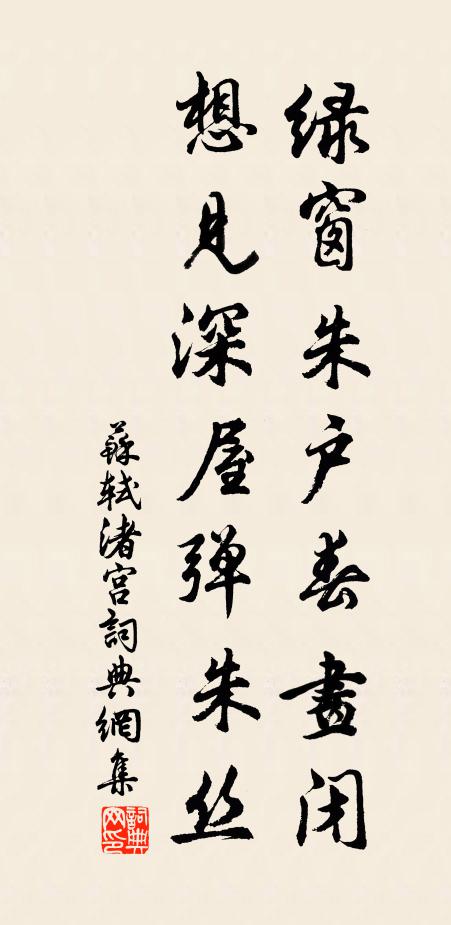 绿窗朱户春畫闭
想见深屋弹朱丝
蘇轼渚宫詞典網集
詞典网印